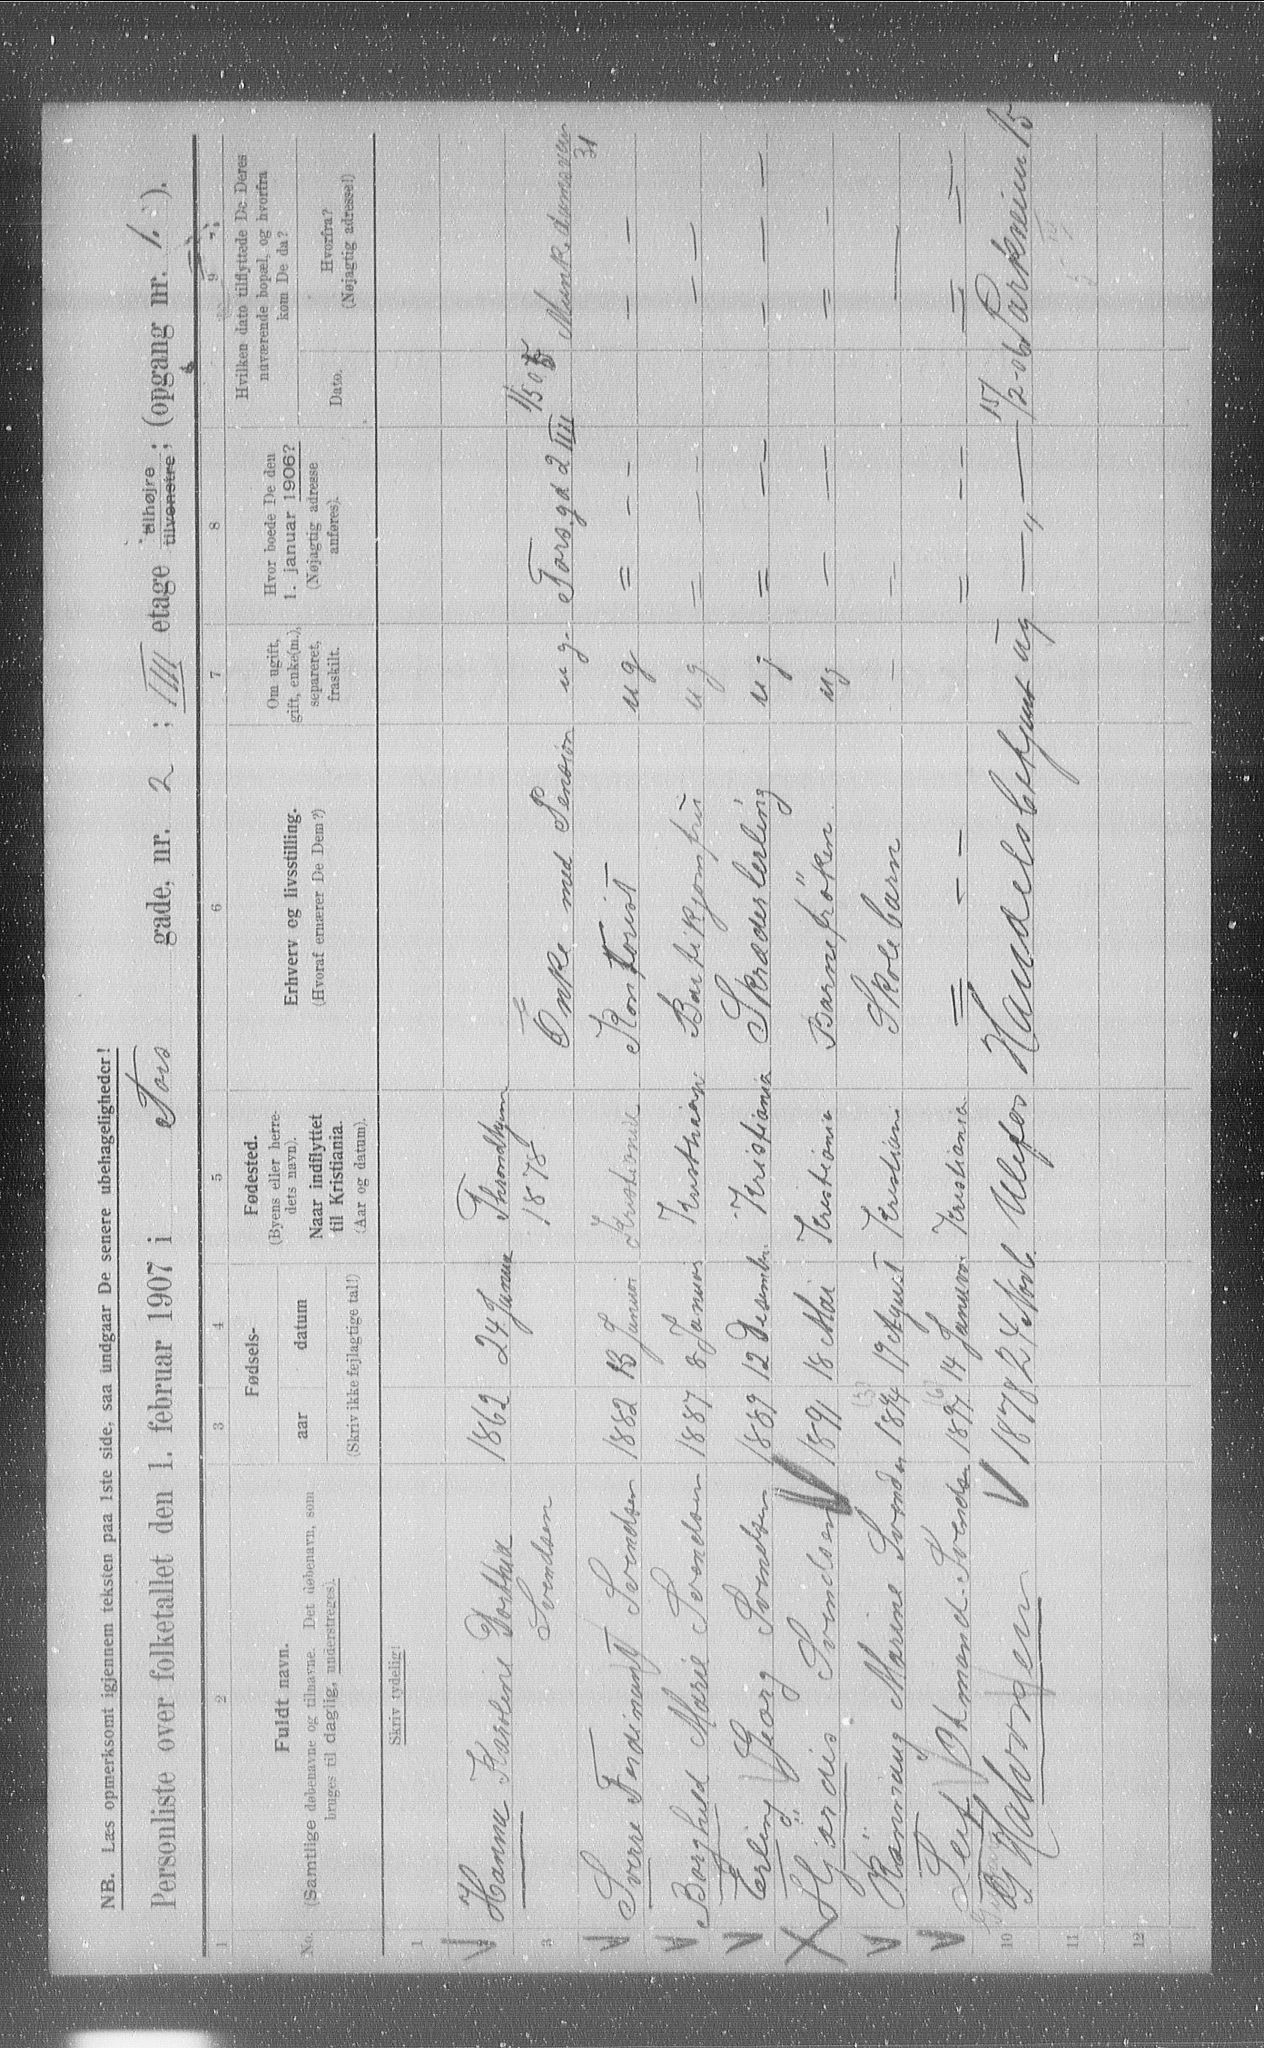 NB. Læs opmerksomt igjennem teksten paa 1ste side, saa undgaar De senere ubehageligheder!
Personliste over folketallet den 1. februar 1907 i Tors gade, nr. 2; IIII etage tilhøjre; tilvenstre; (opgang nr. 1.).
1 2 3 4 5 6 7 8 9
No.
Fuldt navn.
(Samtlige døbenavne og tilnavne. Det døbenavn, som bruges til daglig, understreges).
Fødsels-
aar datum
(Skriv ikke fejlagtige tal!)
Fødested.
(Byens eller herredets navn).
Naar indflyttet til Kristiania.
(Aar og datum).
Erhverv og livsstilling.
(Hvoraf ernærer De Dem?)
Om ugift, gift, enke(m.), separeret, fraskilt.
Hvor boede De den 1. januar 1906?
(Nøjagtig adresse anføres).
Hvilken dato tilflyttede De Deres nuværende bopæl, og hvorfra kom De da?
Dato.
Hvorfra?
(Nøjagtig adresse!)
Skriv tydelig!
1
Hanna Karoline Dorthea 1862 24 Januar Throndhjem
3 Svendsen 1878 Enke med Pension u g. Tors gd 2 IIII 1/5 05 Munkedamsveien 31
Sverre Ferdinant Svendsen 1882 13 Januar Kristiania Kontorist ug = - - - -
Borghild Marie Svendsen 1887 8 Januar Kristiania Bartikjomfru ug = - - - -
Erling Georg Svendsen 1889 12 Desember Kristiania Skrædderlerling ug = - - - -
Hjørdis Svendsen 1891 18 Mai Kristiania Barnefröken ug - - = -
Rannaug Marine Svendsen 1894 19 August Kristiani Skolebarn - - -
Leif Osmund Svendsen 1897 14 Januar Kristiania = - - = - - = =
10 Halvorsen 1878 24 Novb. Ulefos Handelsbetjent ug — " — 15/2-06 Parkveien 15
11
12